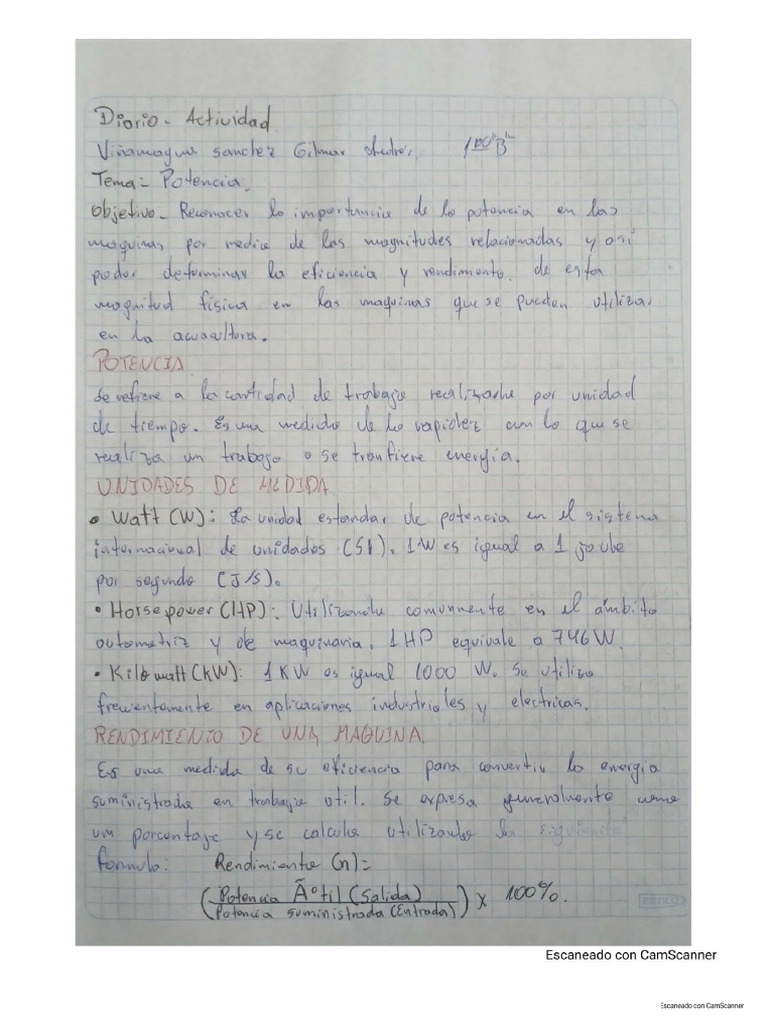 Diario - Actividad
Viñamagua Sanchez Gilmar Andrés 1ro "B"
Tema:- Potencia.
Objetivo - Reconocer la importancia de la potencia en las
maquinas por medio de las magnitudes relacionadas y así
poder determinar la eficiencia y rendimiento de esta
magnitud física en las maquinas que se pueden utilizar
en la acuacultora.
POTENCIA
Se refiere a la cantidad de trabajo realizado por unidad
de tiempo. Es una medida de la rapidez con lo que se
realiza un trabajo o se tranfiere energía.
UNIDADES DE MEDIDA
• Watt (W): La unidad estandar de potencia en el sistema
internacional de unidades (SI). 1W es igual a 1 joule
por segundo (J/s).
• Horsepower (HP): Utilizando comunmente en el ámbito
automatriz y de maquinaria. 1 HP equivale a 746 W.
• Kilowatt (kW): 1 KW es igual 1000 W. Se utiliza
frecuentemente en aplicaciones industriales y electricas.
RENDIMIENTO DE UNA MAQUINA.
Es una medida de su eficiencia para convertir la energía
suministrada en trabajo util. Se expresa generalmente como
um porcentaje y se calcula utilizando la siguiente
formula: Rendimiento (n)=
(Potencia Ã°til (Salida) / Potencia suministrada (Entrada)) x 100%.
ESTILO
Escaneado con CamScanner
Escaneado con CamScanner